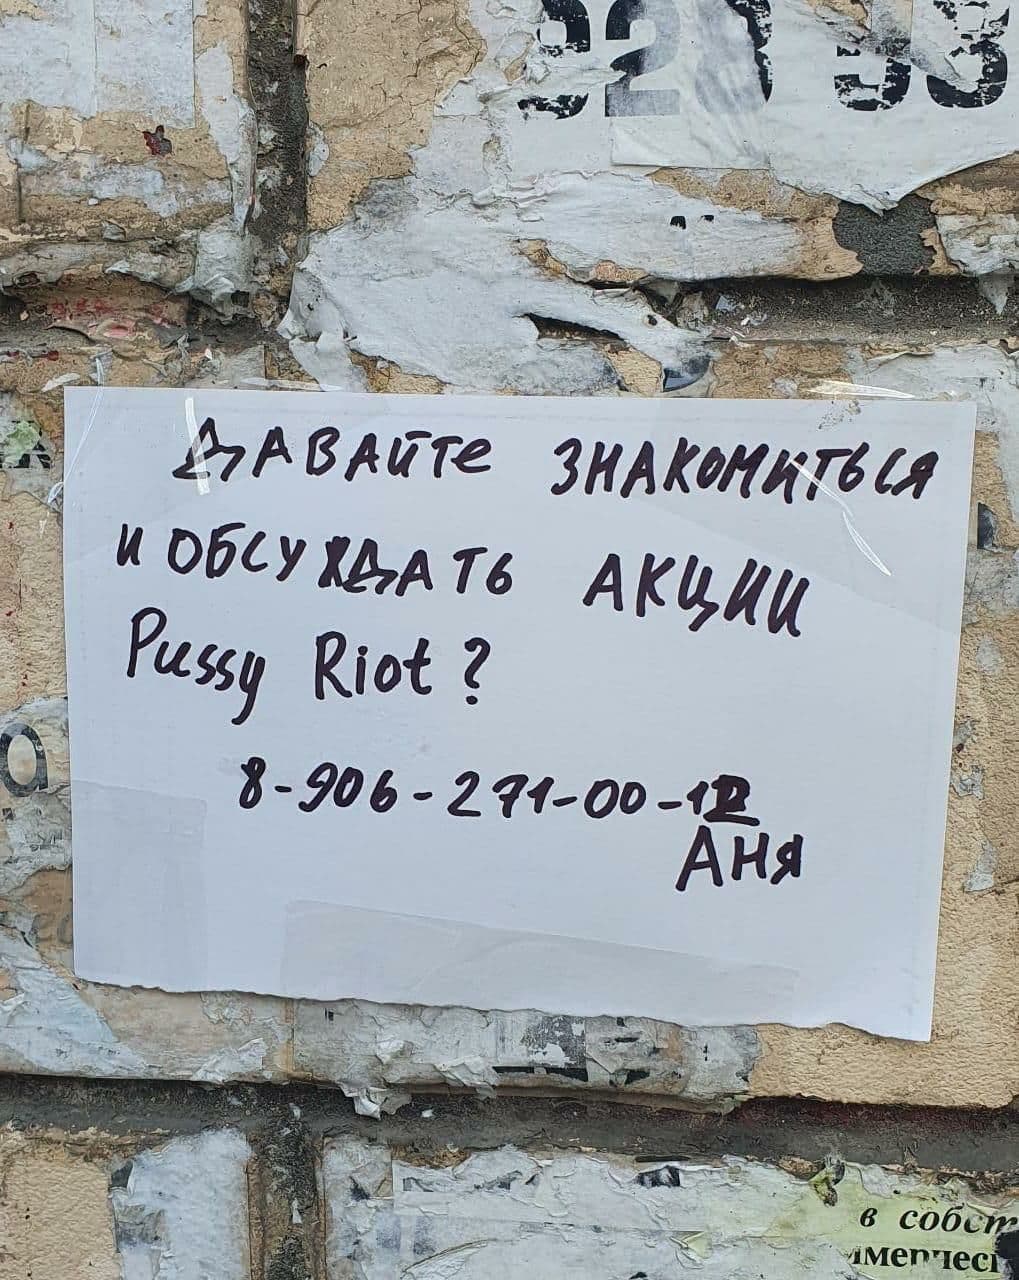 920 98
ДАВАЙТЕ ЗНАКОМИТЬСЯ
И ОБСУЖДАТЬ АКЦИИ
Pussy Riot?
8-906-271-00-
АНЯ
а
в собст